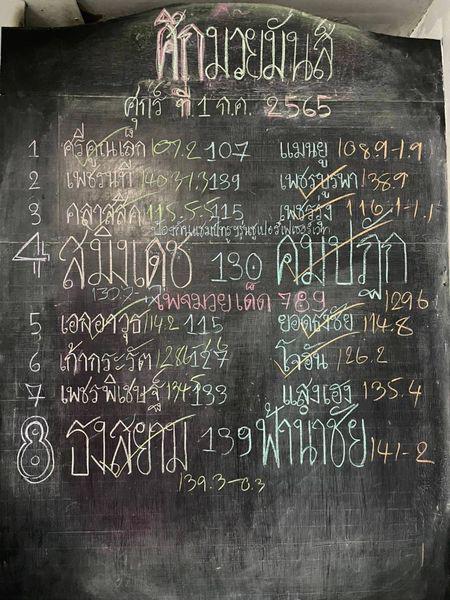 ศึกมวยมันส์
ศุกร์ ที่ 1 ก.ค. 2565
1 ศรีคูณเล็ก 107.2 107 แมนยู 108.9-1.9
2 เพชรนที 139 เพชรบูรพา 138.9
3 คลาสสิค 115.5-.5 115 เพชรรุ่ง 116.1-1.1
ป้องกันแชมป์กรุงรุ่นซูเปอร์เฟเธอร์เวท
4 สมิงเดช 130 คมปฏัก
โพงมวยเด็ด 789 129.6
5 เอลอาวุธ 114.2 115 ยอดธงชัย 114.8
6 เก้ากะรัต 128.6-1.6 127 โจอัน 126.2
7 เพชรพิเชษฐ์ 134.5 133 แสงเฮง 135.4
8 ธงสยาม 139 ฟ้านำชัย 141-2
139.3-0.3